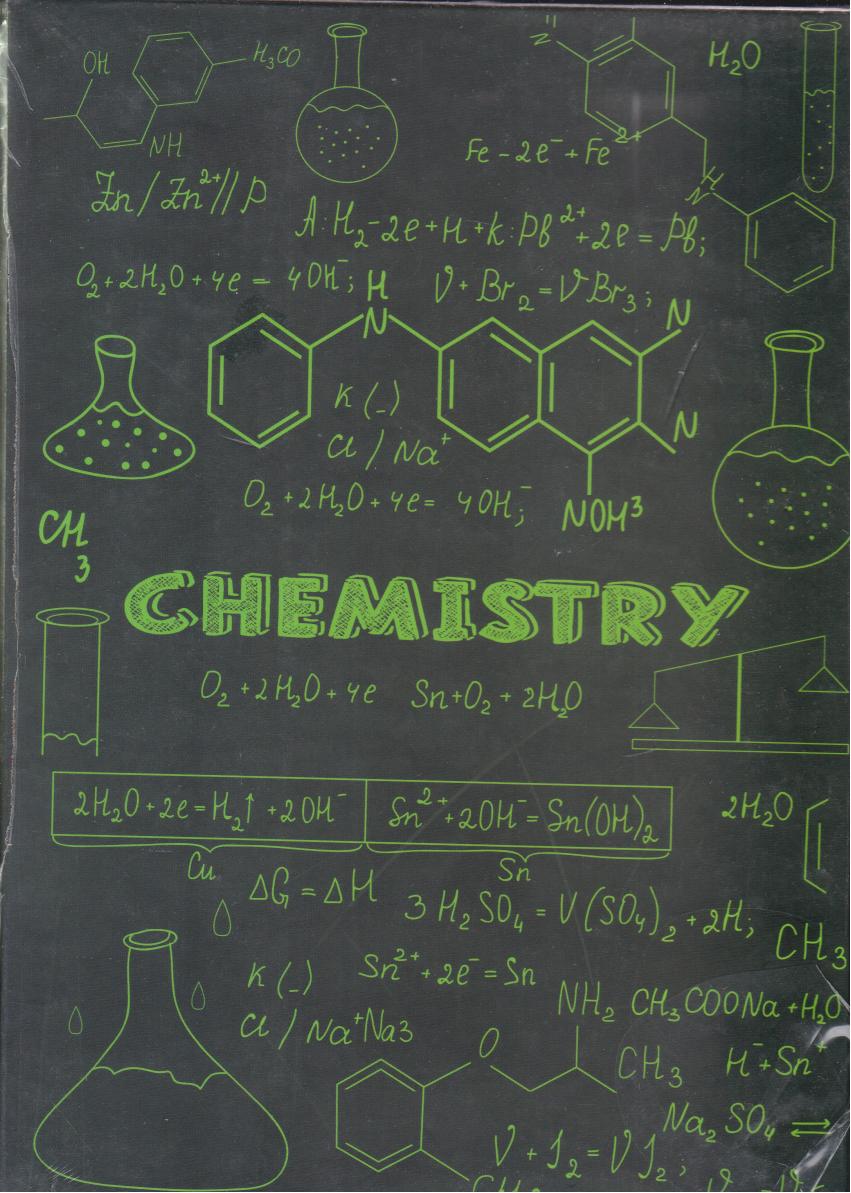 OH
H₃CO
NH
N
H₂O
Fe - 2e⁻ + Fe²⁺
H
N
Zn / Zn²⁺ // p
A : H₂ - 2e + H + K : Pb²⁺ + 2e = Pb;
O₂ + 2H₂O + 4e = 4OH⁻;
V + Br₂ = VBr₃;
H
N
N
K (-)
Cl / Na⁺
N
O₂ + 2H₂O + 4e = 4OH⁻;
NOH³
CH₃
CHEMISTRY
O₂ + 2H₂O + 4e
Sn + O₂ + 2H₂O
2H₂O + 2e = H₂↑ + 2OH⁻
Sn²⁺ + 2OH⁻ = Sn(OH)₂
2H₂O
Cu
Sn
ΔG = ΔH
3 H₂SO₄ = V(SO₄)₂ + 2H;
CH₃
K (-)
Sn²⁺ + 2e⁻ = Sn
NH₂
CH₃COONa + H₂O
Cl / Na⁺Na3
O
CH₃
H⁻ + Sn⁺
Na₂SO₄ ⇌
V + J₂ = VJ₂;